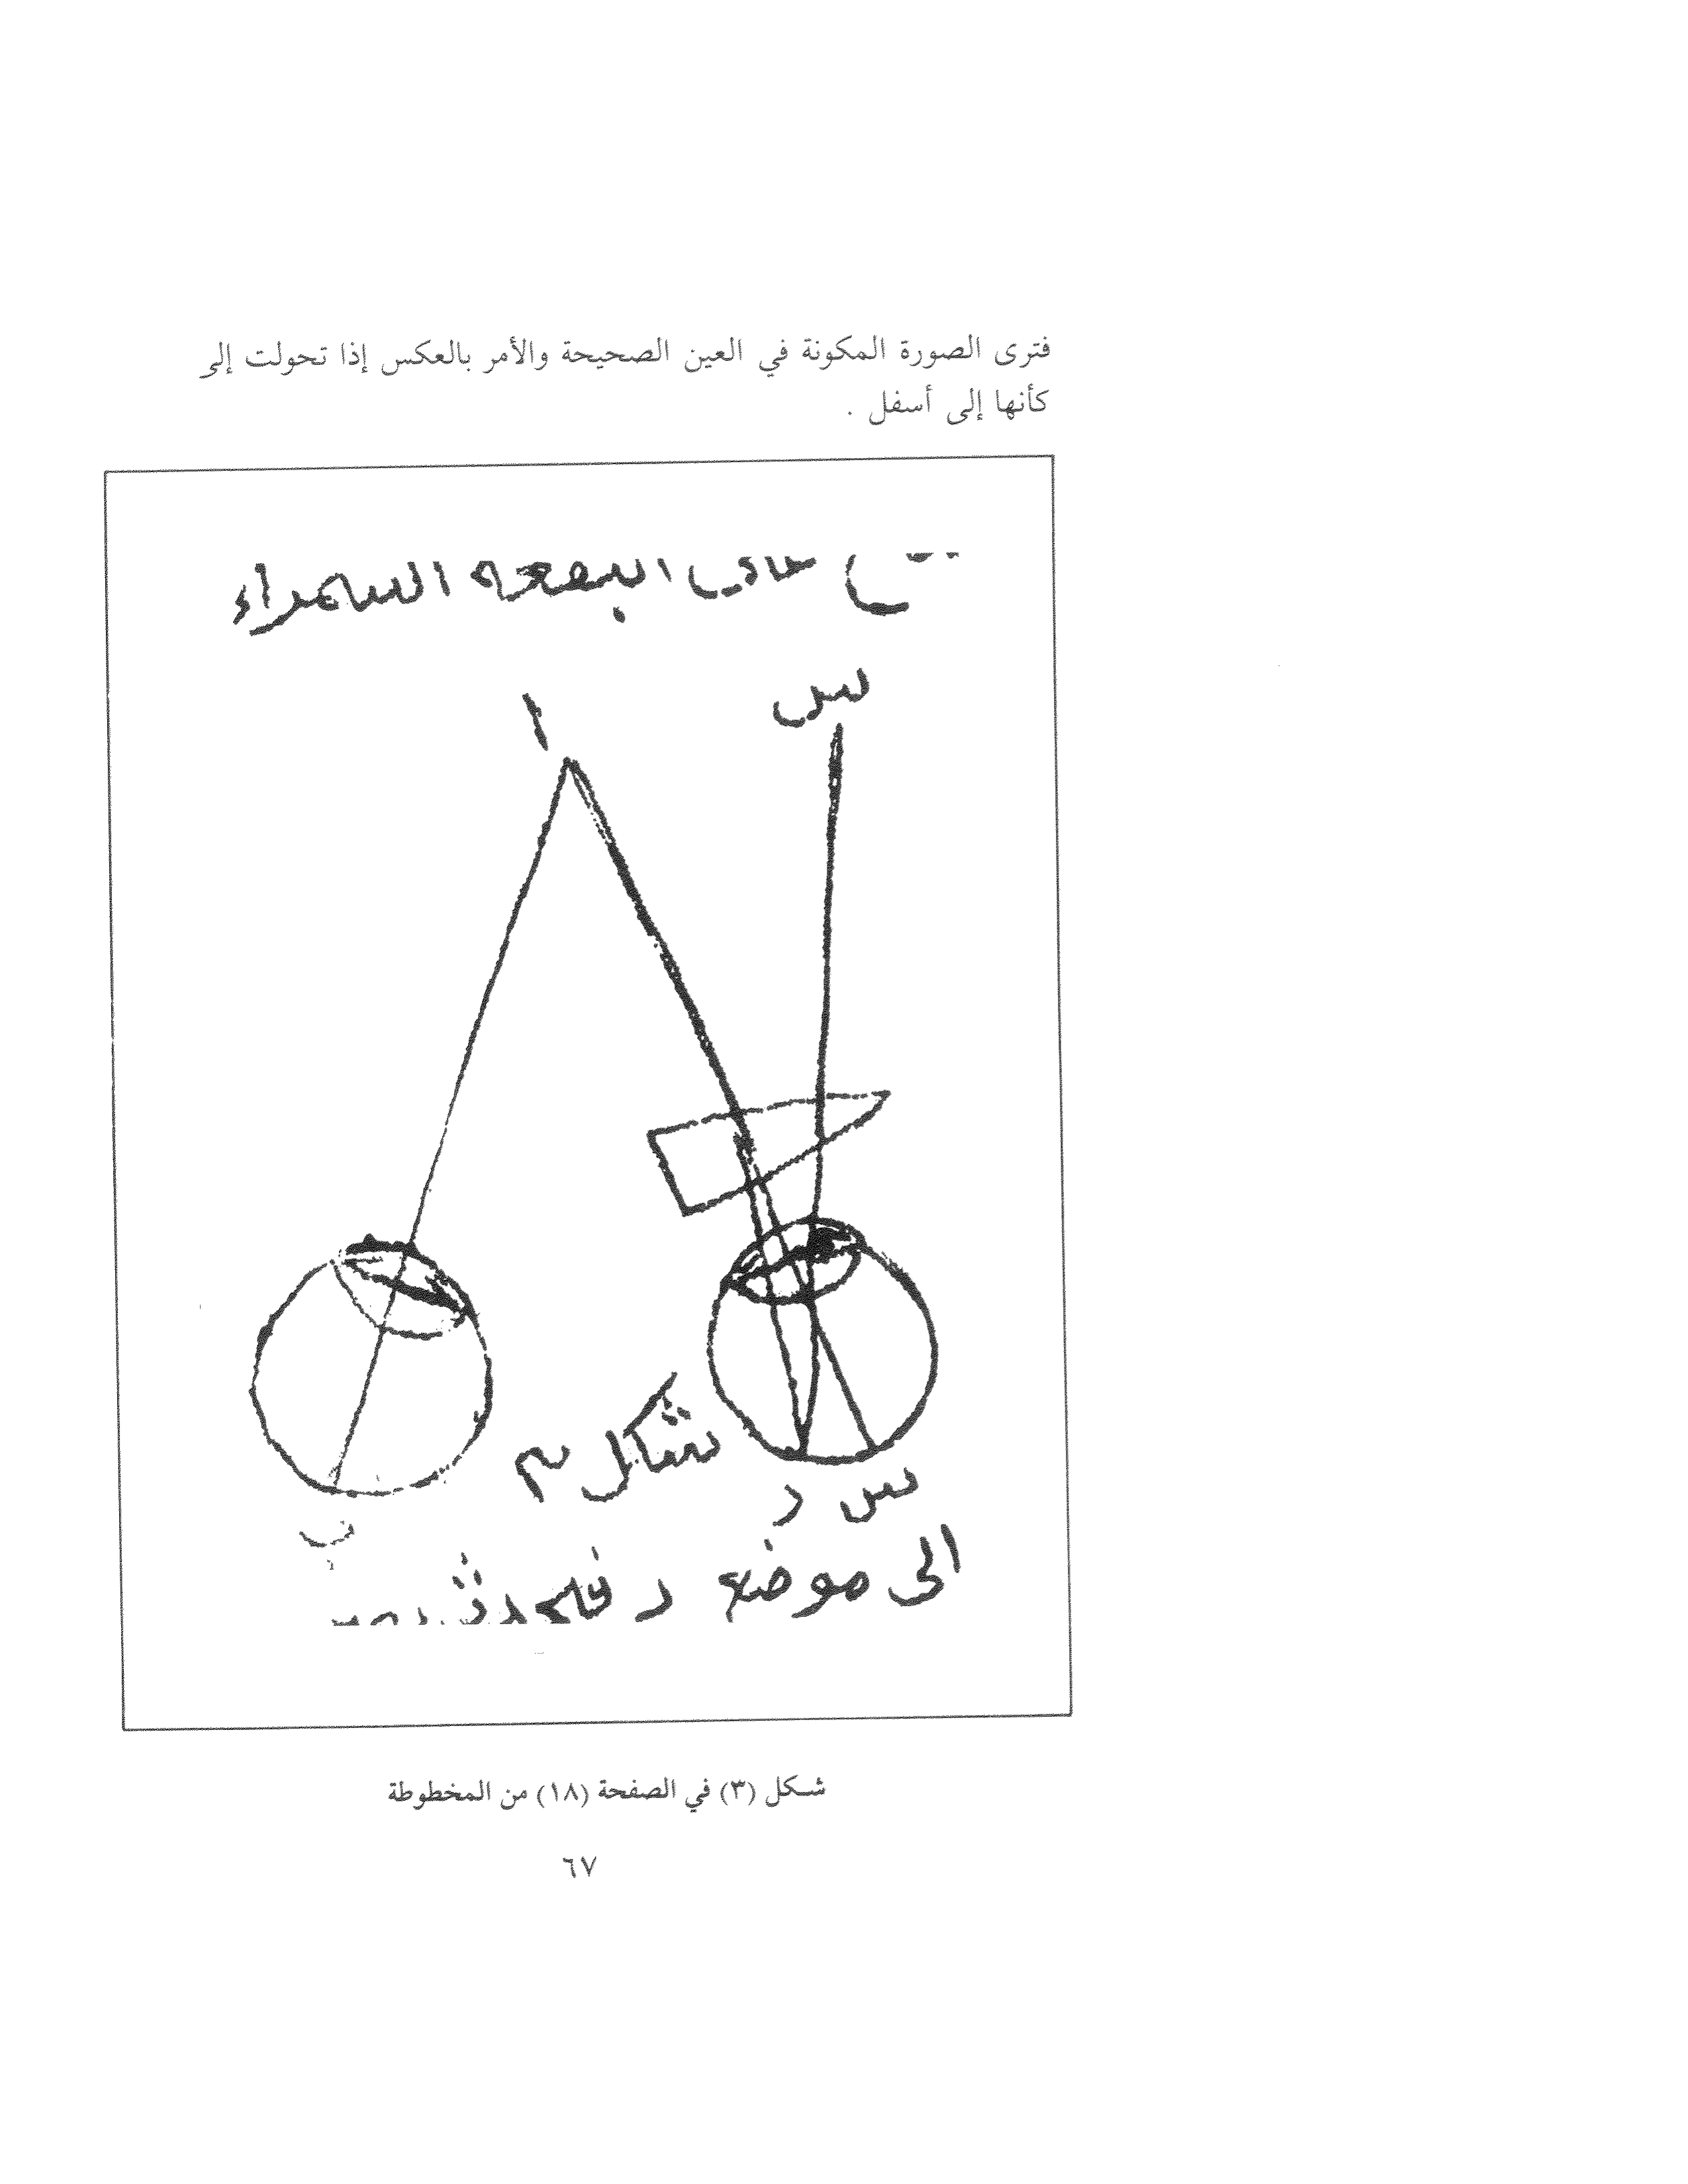 فترى الصورة المكونة في العين الصحيحة والأمر بالعكس إذا تحولت إلى
كأنها إلى أسفل .
على البقعة السمراء
ا
س
شكل ٣
ب
ر
س
الى موضع ر
شكل (٣) في الصفحة (١٨) من المخطوطة
٦٧